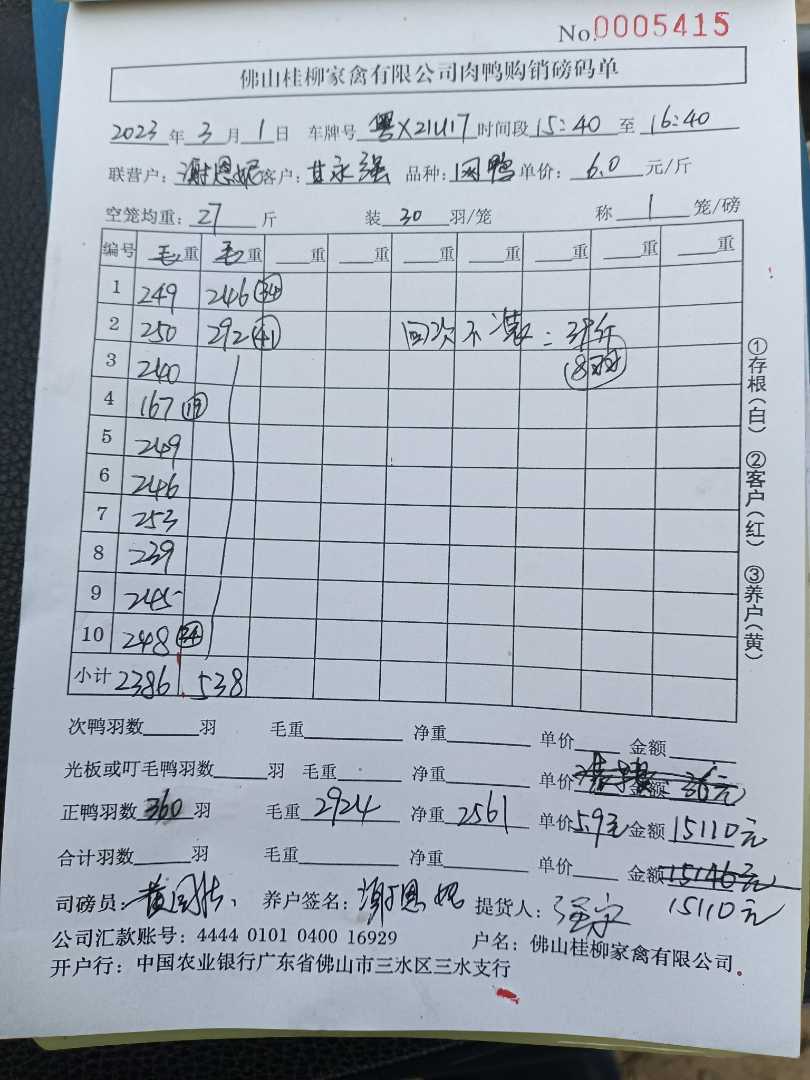 No.0005415
佛山桂柳家禽有限公司肉鸭购销磅码单
2023年3月1日 车牌号 粤X21U17 时间段 15:40 至 16:40
联营户: 谢恩妮 客户: 甘永强 品种: 网鸭 单价: 6.0 元/斤
空笼均重: 27 斤 装 30 羽/笼 称 1 笼/磅
编号 毛重 毛重 重 重 重 重 重 重 重
1 249 246 (34)
2 250 292 (41) 不
3 240
4 167 (19)
5 249
6 246
7 253
8 239
9 245
10 248 (34)
小计 2386 538
①存根(白) ②客户(红) ③养户(黄)
次鸭羽数 羽 毛重 净重 单价 金额
光板或叮毛鸭羽数 羽 毛重 净重 单价 金额 36元
正鸭羽数 360 羽 毛重 2924 净重 2561 单价 5.9元 金额 15110元
合计羽数 羽 毛重 净重 单价 金额 15146元
15110元
司磅员: 养户签名: 谢恩妮 提货人:
公司汇款账号: 4444 0101 0400 16929 户名: 佛山桂柳家禽有限公司.
开户行: 中国农业银行广东省佛山市三水区三水支行